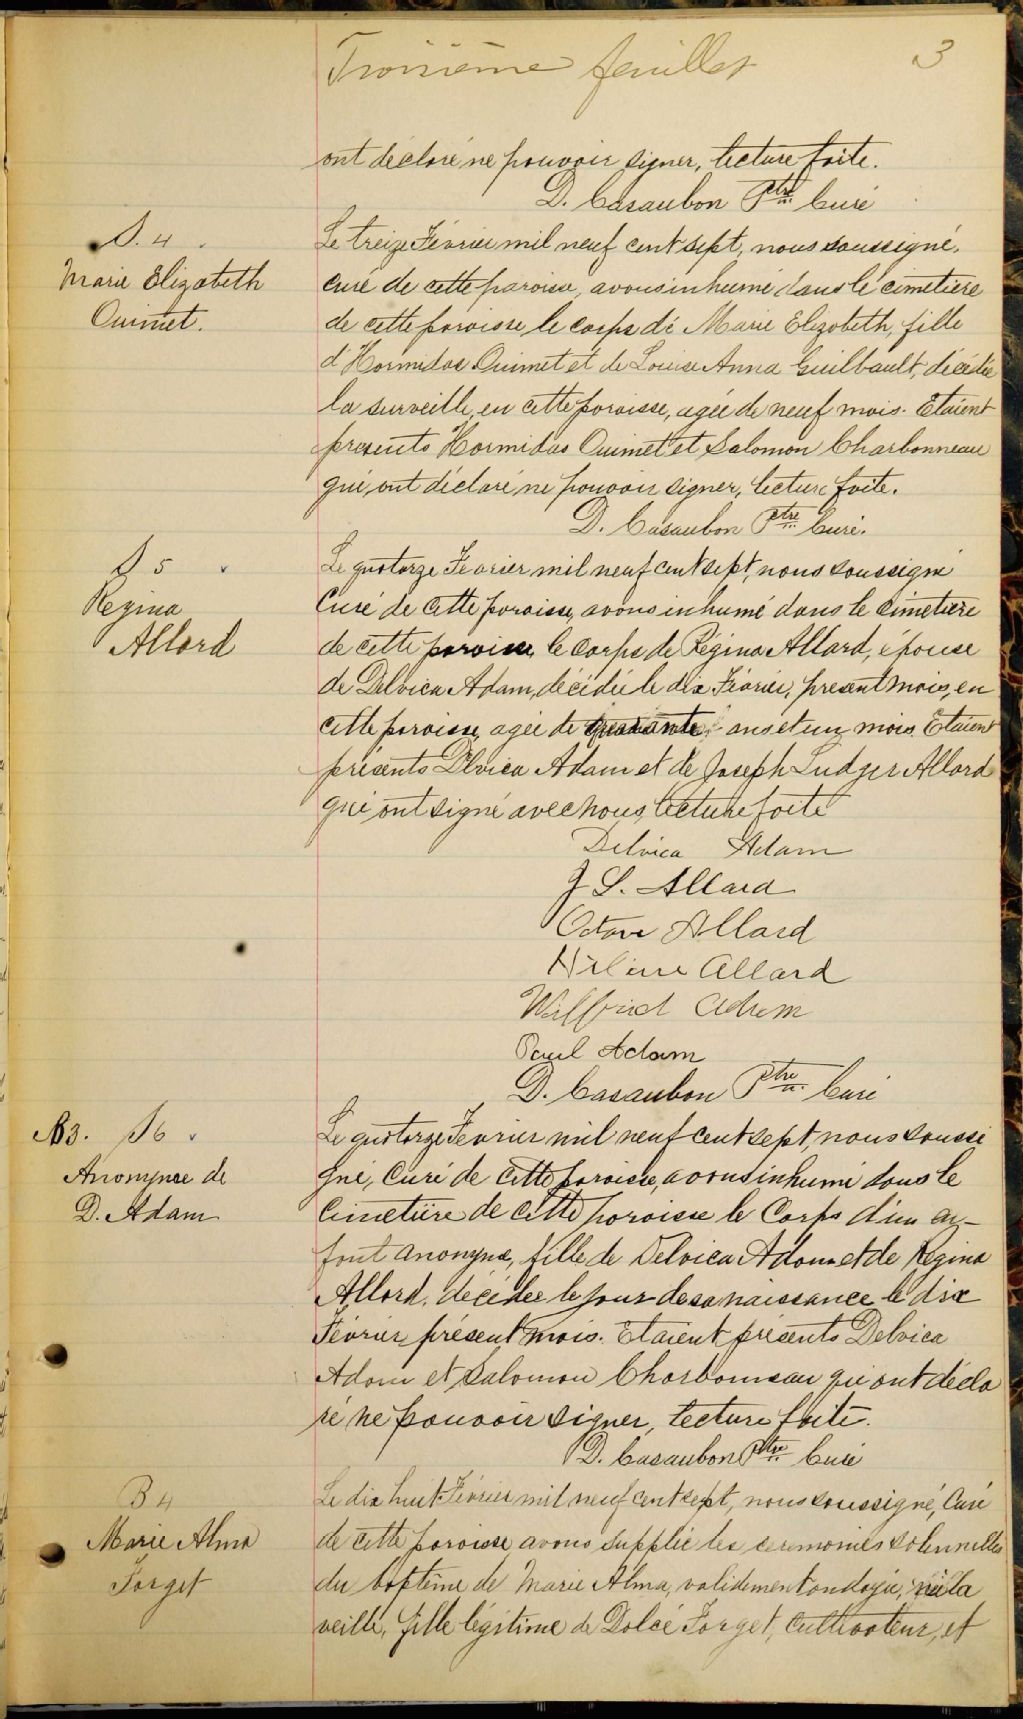 Troisième feuillet 3
ont déclaré ne pouvoir signer, lecture faite.
D. Casaubon Ptre Curé
S. 4
Marie Elizabeth
Ouimet.
Le treize Février mil neuf cent sept, nous soussigné,
curé de cette paroisse, avons inhumé dans le cimetière
de cette paroisse le corps de Marie Elizabeth, fille
d'Hormidas Ouimet et de Louise Anna Guilbault, décédée
la surveille, en cette paroisse, agée de neuf mois. Etaient
presents Hormidas Ouimet et Salomon Charbonneau
qui ont déclaré ne pouvoir signer, lecture faite.
D. Casaubon Ptre Curé.
S 5
Regina
Allard
Le quatorze Février mil neuf cent sept, nous soussigné
Curé de cette paroisse, avons inhumé dans le cimetière
de cette paroisse le corps de Régina Allard, épouse
de Delvica Adam, décédée le dix Février, present mois, en
cette paroisse, agée de ans et un mois. Etaient
présents Delvica Adam et de Joseph Ludger Allard
qui ont signé avec nous, lecture faite
Delvica Adam
J L. Allard
Octave Allard
Allard
Wilfrid Adam
Paul Adam
D. Casaubon Ptre Curé
B3. S6
Anonyme de
D. Adam
Le quatorze Fevrier mil neuf cent sept, nous soussi
gné, Curé de cette paroisse, avons inhumé dans le
Cimetière de cette paroisse le Corps d'un en-
fant anonyme, fille de Delvica Adam et de Regina
Allard, décédée le jour de sa naissance le dix
Février présent mois. Etaient présents Delvica
Adam et Salomon Charbonneau qui ont décla
ré ne pouvoir signer, lecture faite.
D. Casaubon Ptre Curé
B 4
Marie Alma
Forget
Le dix huit Février mil neuf cent sept, nous soussigné, Curé
de cette paroisse avons supplié les ceremonies solennelles
du baptême de Marie Alma, validement ondoyée, née la
veille, fille légitime de Dolcé Forget, Cultivateur, et